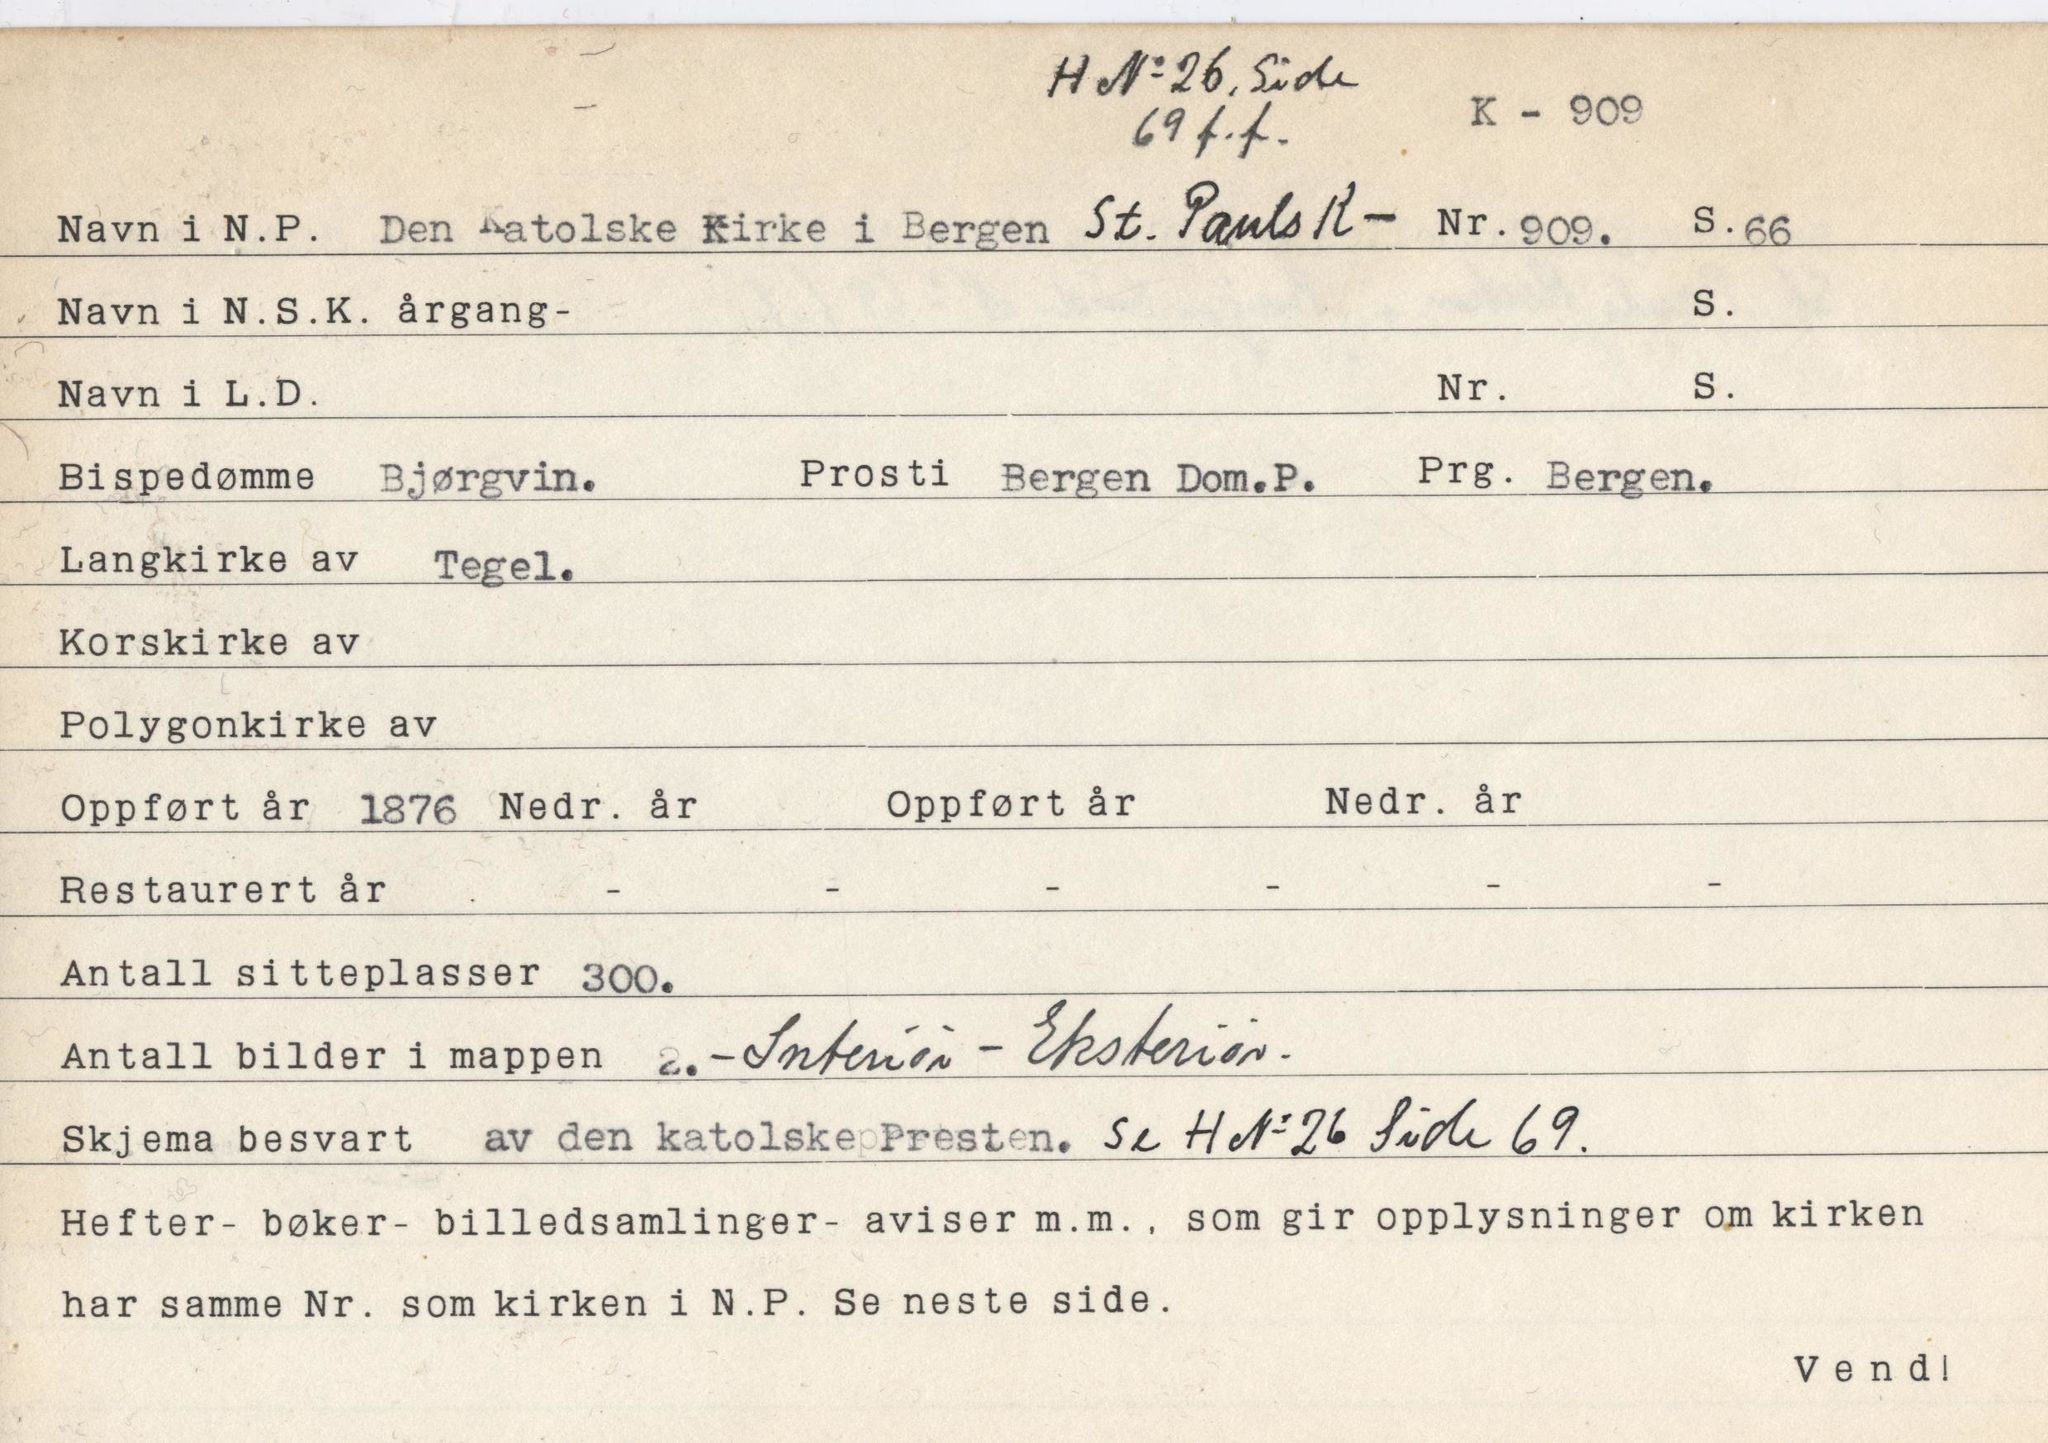 H No 26, Side
69 f.f.
K - 909
Navn i N.P. Den Katolske Kirke i Bergen St. Pauls K- Nr. 909. S. 66
Navn i N.S.K. årgang- S.
Navn i L.D. Nr. S.
Bispedømme Bjørgvin. Prosti Bergen Dom.P. Prg. Bergen.
Langkirke av Tegel.
Korskirke av
Polygonkirke av
Oppført år 1876 Nedr. år Oppført år Nedr. år
Restaurert år - - - - - -
Antall sitteplasser 300.
Antall bilder i mappen 2. - Interiör - Eksteriör.
Skjema besvart av den katolske Presten. Se H No 26 Side 69.
Hefter- bøker- billedsamlinger- aviser m.m., som gir opplysninger om kirken
har samme Nr. som kirken i N.P. Se neste side.
Vend!